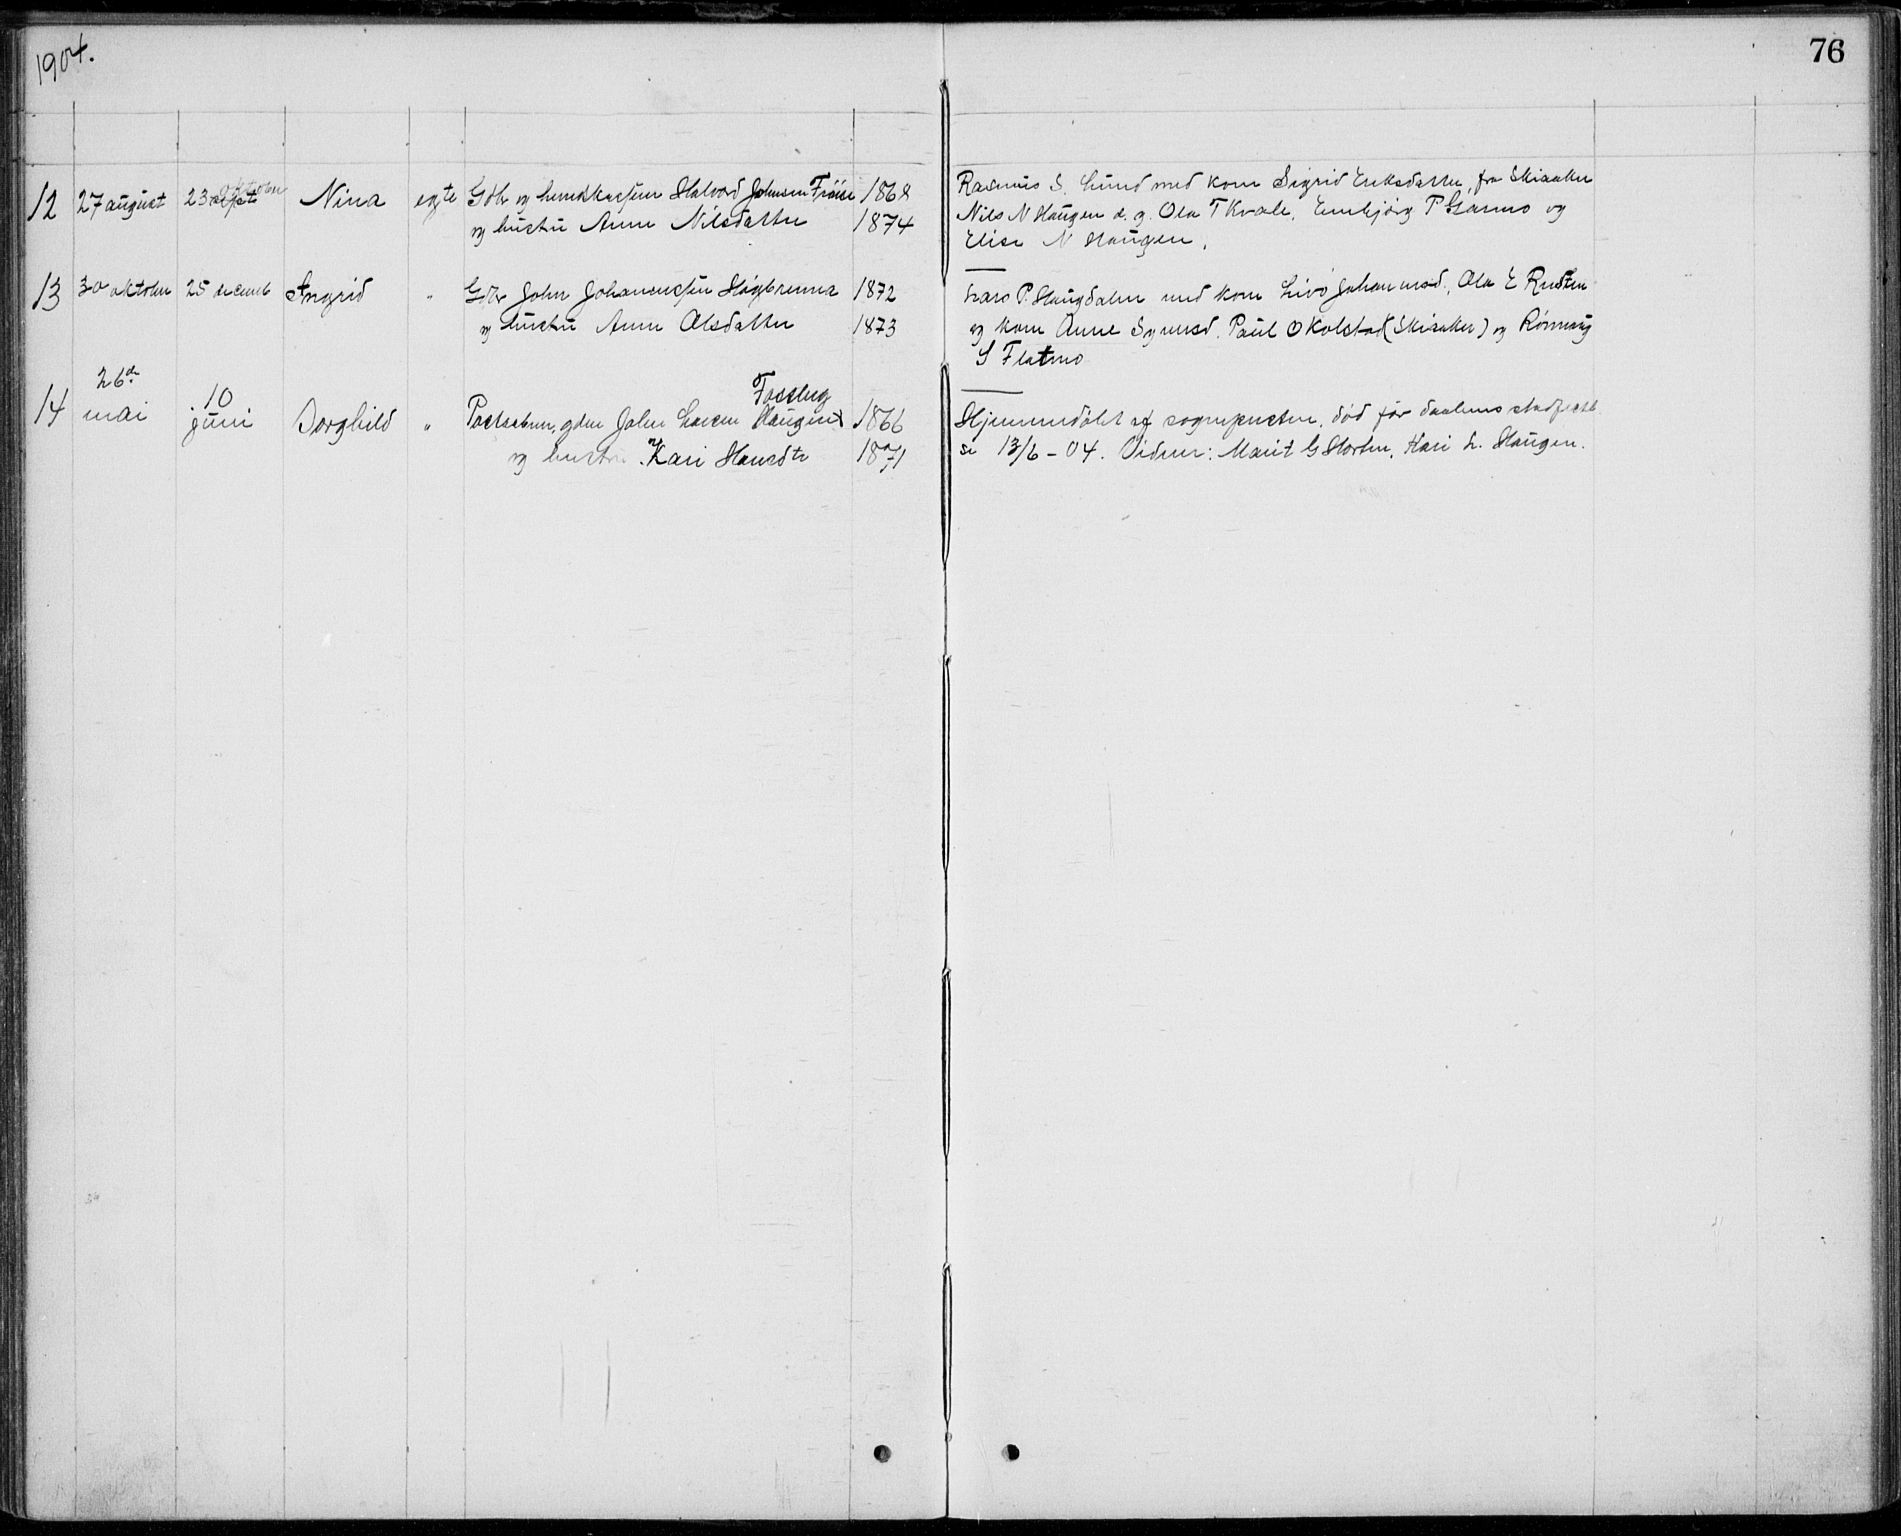 1904.
76
12 27 august 23 sept oktober Nina egte Gbr og Halvord Johnsen Frøise 1868
og hustru Anne Nilsdatter 1874
Rasmus S. Lund med kone Sigrid Eriksdatter, fra Skiaaker
Nils N Haugen d. y. Ola T Kvale, Embjörg P Garmo og
Elise N Haugen.
13 30 oktober 25 decemb Ingrid " Gbr John Johannessen Høgbrenna 1872
og hustru Anne Olsdatter 1873
Lars P. Haugdalen med kone Livø Johannesd., Ola E Rusten
og kone Anne Syversd. Paul O Kolstad (Skiaaker) og Rönnaug
S Flatmo
14 26de mai 10 juni Borghild " John Larsen Haugen Fossberg 1866
og hustru Kari Hansdtr 1871
Hjemmedøbt af sognepresten, død før daabens stadfæstel
se 13/6 - 04. Vidner: Marit G Storten, Kari L. Haugen.